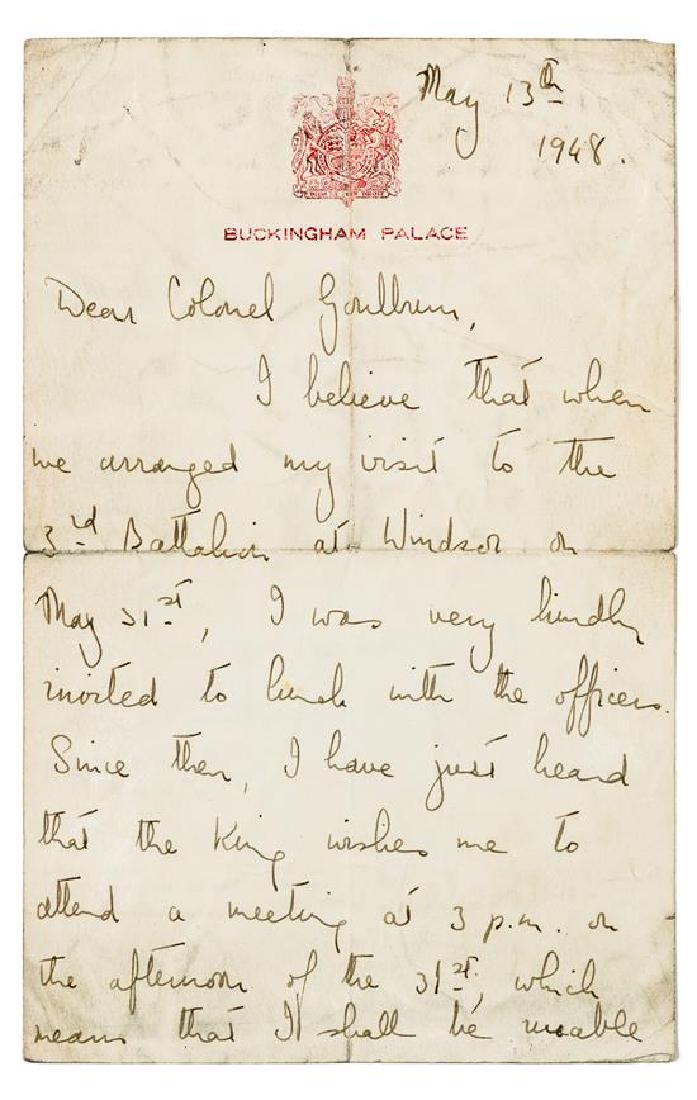 May 13th
1948.
BUCKINGHAM PALACE
Dear Colonel Goulburn,
I believe that when
we arranged my visit to the
3rd Battalion at Windsor on
May 31st, I was very kindly
invited to lunch with the officers.
Since then, I have just heard
that the King wishes me to
attend a meeting at 3 p.m. on
the afternoon of the 31st, which
means that I shall be unable